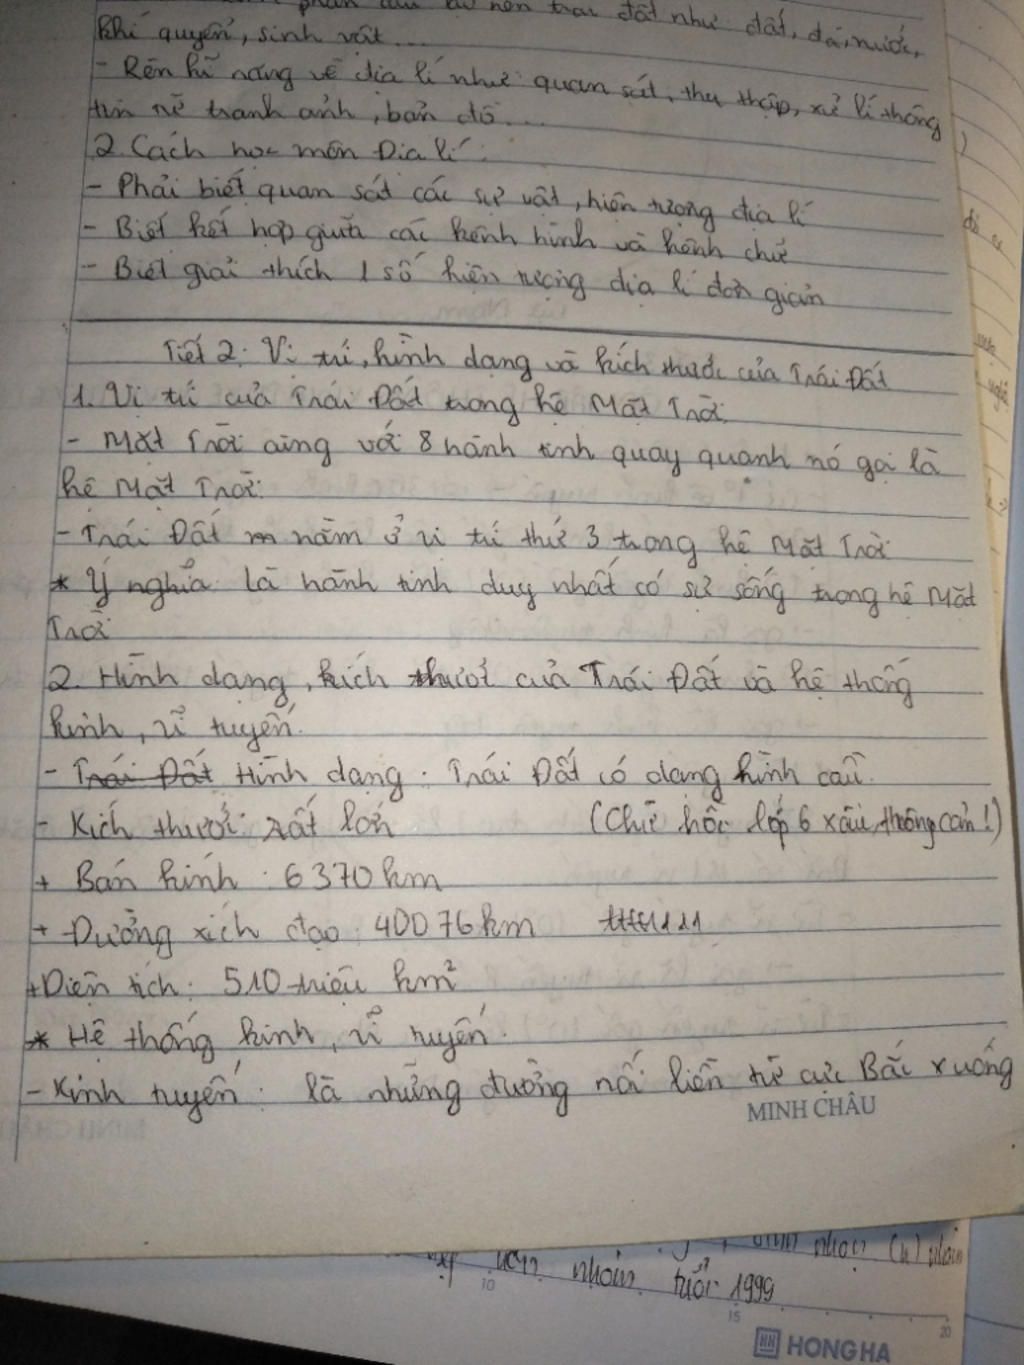 phần cấu tạo nên trái đất như: đất, đá, nước,
khí quyển, sinh vật...
- Rèn kĩ năng về địa lí như: quan sát, thu thập, xử lí thông
tin về tranh ảnh, bản đồ...
2. Cách học môn Địa lí:
- Phải biết quan sát các sự vật, hiện tượng địa lí
- Biết kết hợp giữa các kênh hình và kênh chữ
- Biết giải thích 1 số hiện tượng địa lí đơn giản
Tiết 2: Vị trí, hình dạng và kích thước của Trái Đất
1. Vị trí của Trái Đất trong hệ Mặt Trời.
- Mặt Trời cùng với 8 hành tinh quay quanh nó gọi là
hệ Mặt Trời.
- Trái Đất nằm ở vị trí thứ 3 trong hệ Mặt Trời
* Ý nghĩa: là hành tinh duy nhất có sự sống trong hệ Mặt
Trời
2. Hình dạng, kích thướt của Trái Đất và hệ thống
kinh, vĩ tuyến.
- Trái Đất Hình dạng: Trái Đất có dạng hình cầu.
- Kích thước: rất lớn (Chữ hồi lớp 6 xấu, thông cảm!)
+ Bán kính: 6370 km
+ Đường xích đạo: 40076 km
+ Diện tích: 510 triệu km²
* Hệ thống kinh, vĩ tuyến.
- Kinh tuyến: là những đường nối liền từ cực Bắc xuống
MINH CHÂU
nhọn (n) nhóm
nhóm tuổi 1999
10 15 20
HH HONG HA